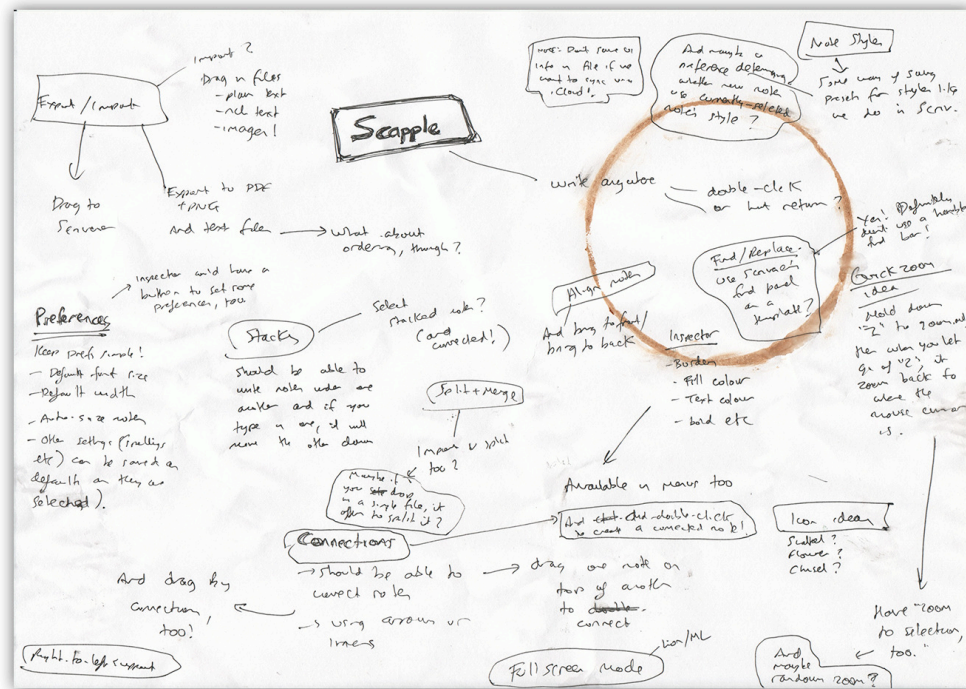 Import?
Drag in files
- plain text
- rich text
- images!
Export/Import
Drag to
Scrivener
Export to PDF
+ PNG
And text files
What about
ordering, though?
Scapple
NOTE: Don't save UI
info in file if we
want to sync via
iCloud!
And maybe a
preference determining
whether new notes
use currently-selected
note's style?
Note Styles
Some way of saving
presets for styles like
we do in Scriv.
write anywhere
double-click
or hit return?
Yes! Definitely
don't use a
find bar!
Find/Replace
use Scrivener's
find panel
as a
template?
Align notes
And bring to front/
bring to back
Quick zoom
idea
Hold down
"Z" to zoom out
then when you let
go of "Z", it
zooms back to
where the
mouse cursor
is.
Inspector could have a
button to set some
preferences, too
Preferences
Keep prefs simple!
- Default font size
- Default width
- Auto-size notes
- Other settings
etc) can be saved as
default as they are
selected).
Stacks
Select
stacked notes?
(and
connected!)
should be able to
write notes under one
another and if you
type in one, it will
move the other down
Split + Merge
Import & split
too?
Maybe if
you drop
in a single file, it
offers to split it?
Inspector
- Border
- Fill colour
- Text colour
- bold etc
Available in menus too
And double-click
to create a connected note!
Icon ideas
Scalpel?
Flower?
Chisel?
Connections
→ Should be able to
connect notes
→ using arrows or
lines
drag one note on
top of another
to
connect
And drag by
connection,
too!
Right-to-left support
Full screen mode
Lion/ML
Have "zoom
to selection,
too."
And
maybe
random zoom?